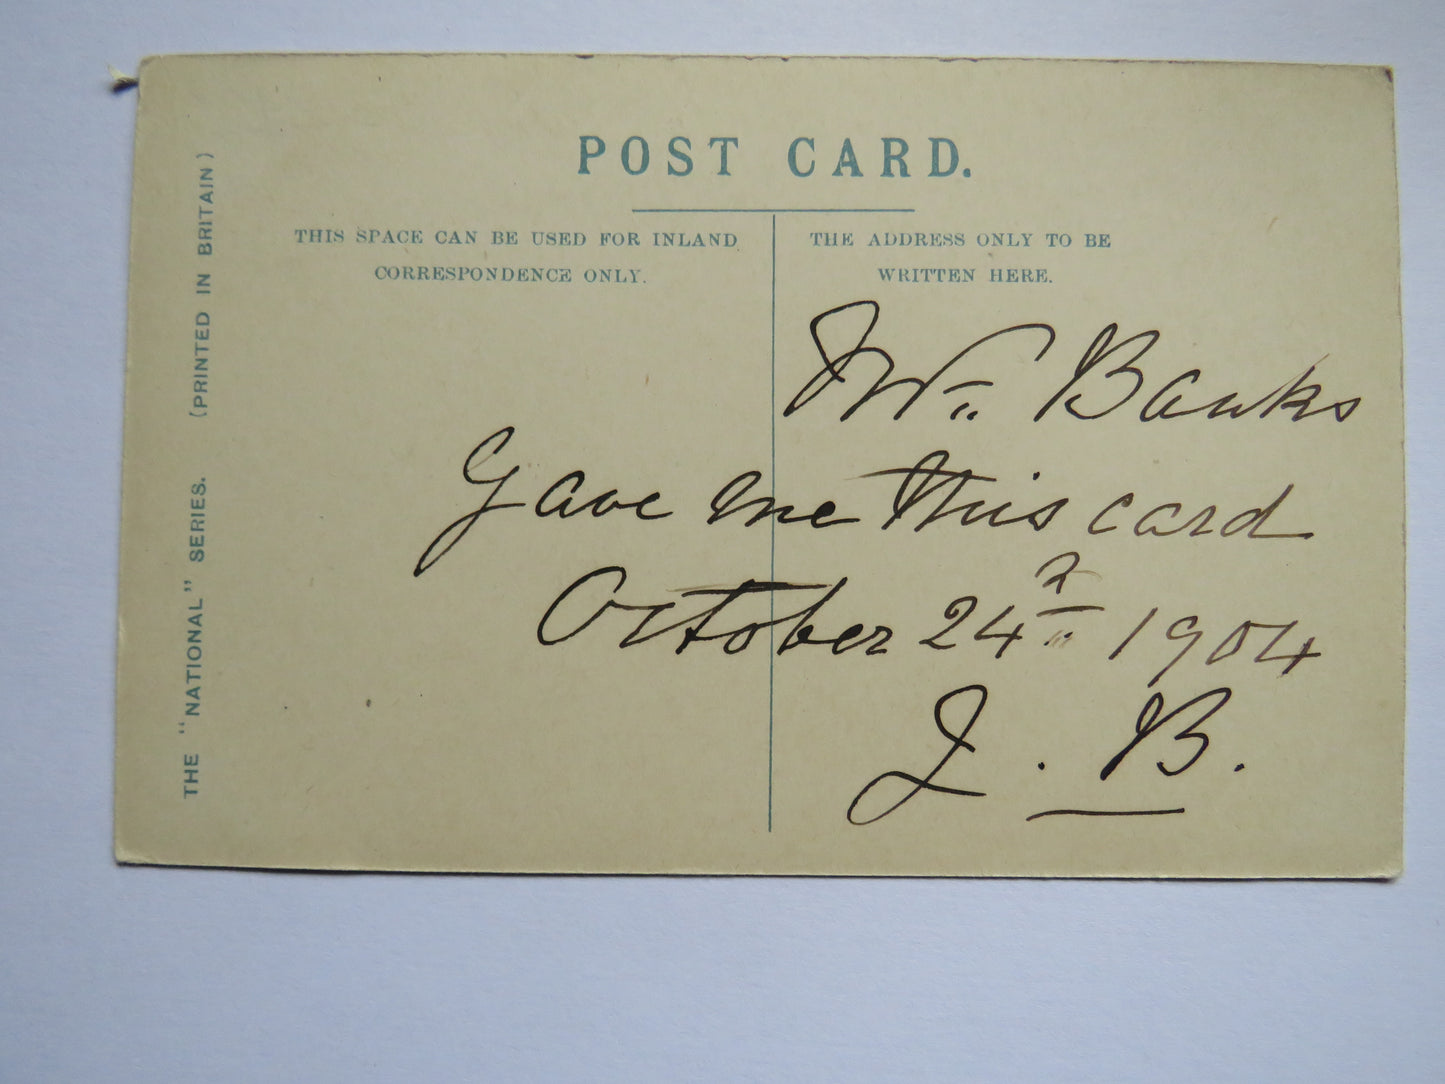 POST CARD.
THIS SPACE CAN BE USED FOR INLAND
CORRESPONDENCE ONLY.
THE ADDRESS ONLY TO BE
WRITTEN HERE.
THE "NATIONAL" SERIES. (PRINTED IN BRITAIN)
Banks
Gave me this card
October 24 1904
J. B.